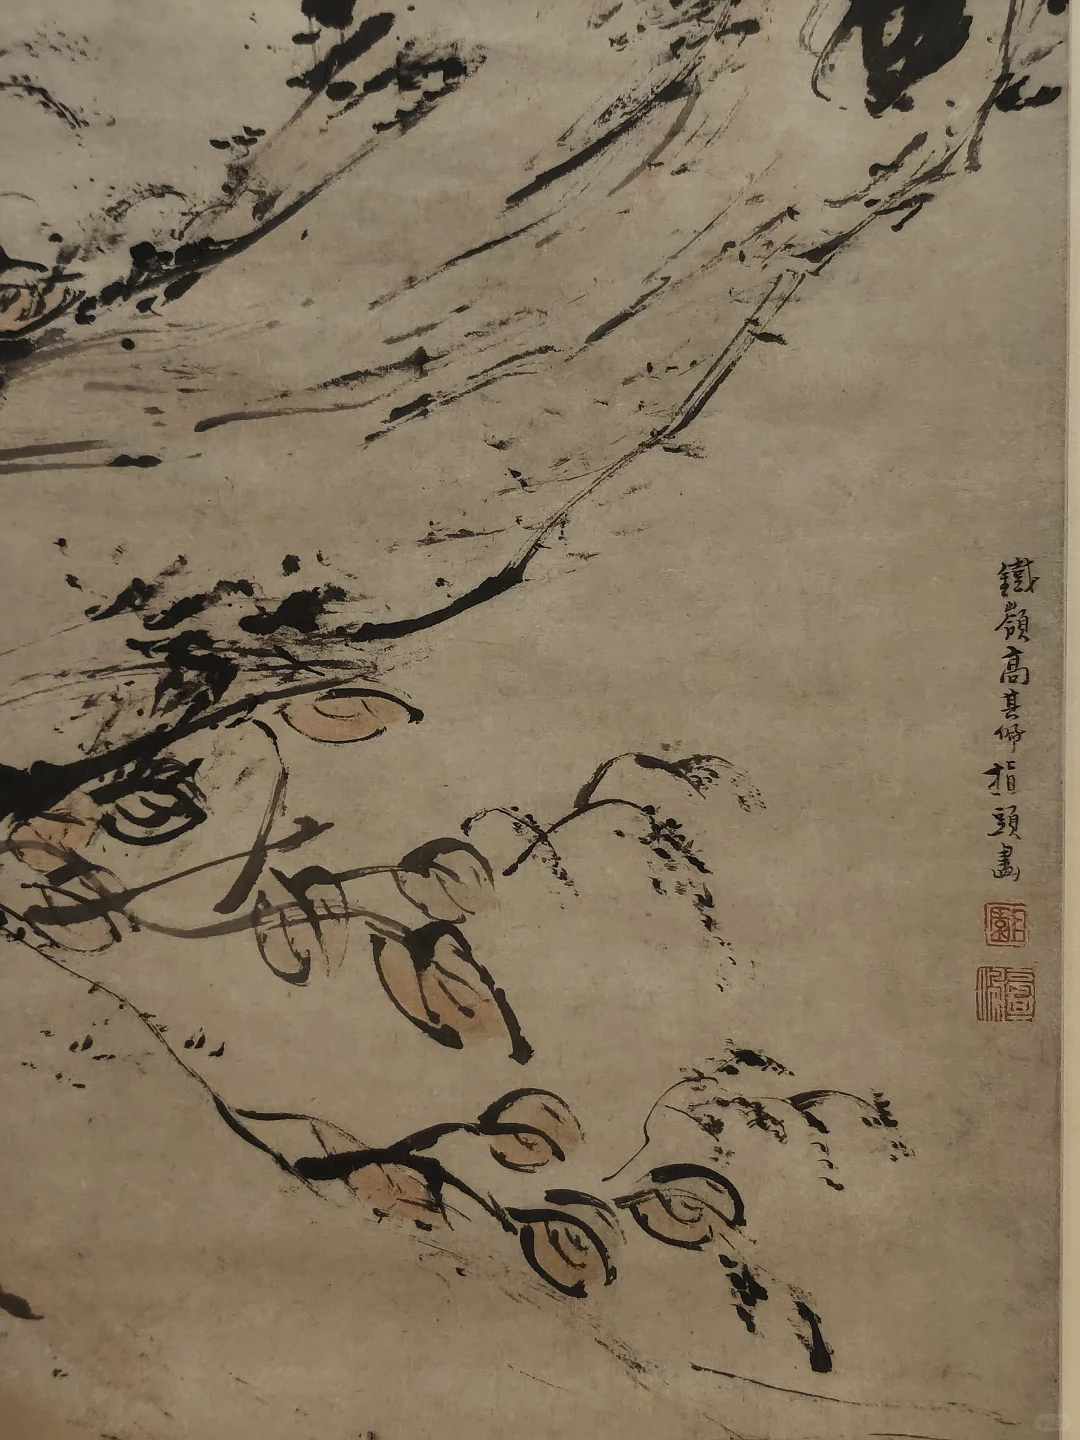 鐵嶺高其佩指頭畫